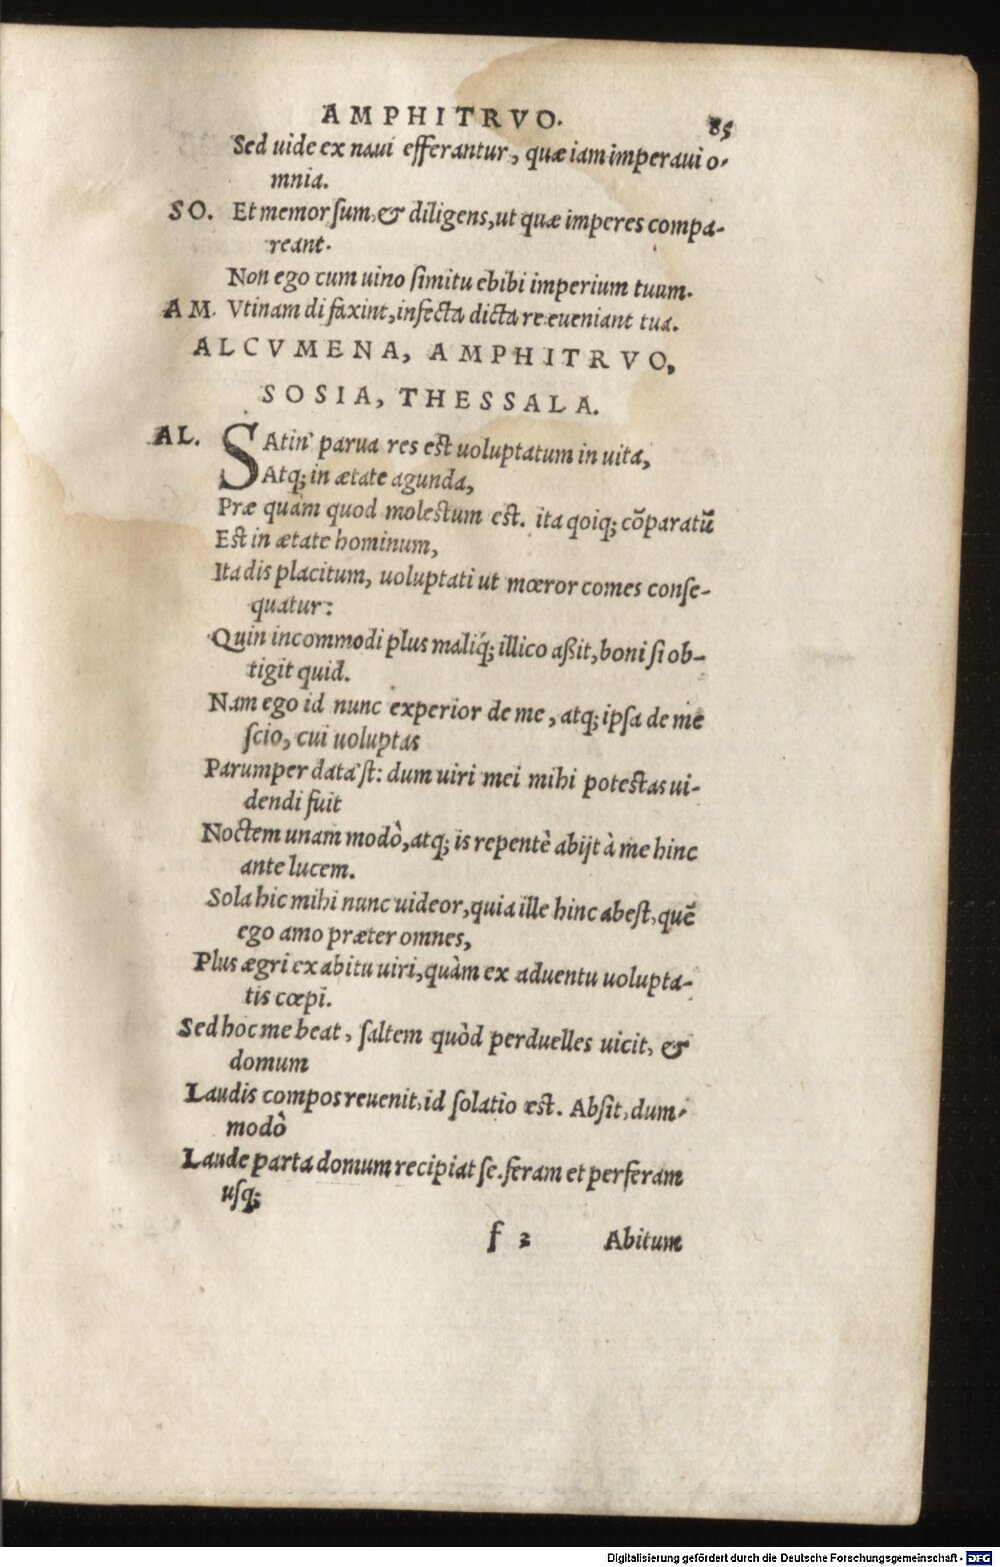 AMPHITRVO. 85
Sed uide ex naui efferantur, quæ iam imperaui o-
mnia.
SO. Et memor sum, & diligens, ut quæ imperes compa-
reant.
Non ego cum uino simitu ebibi imperium tuum.
AM. Vtinam di faxint, infecta dicta re eueniant tua.
ALCVMENA, AMPHITRVO,
SOSIA, THESSALA.
AL. SAtin' parua res est uoluptatum in uita,
Atq; in ætate agunda,
Præ quàm quod molestum est. ita qoiq; cōparatū
Est in ætate hominum,
Ita dis placitum, uoluptati ut mœror comes conse-
quatur:
Quin incommodi plus maliq́; illico aßit, boni si ob-
tigit quid.
Nam ego id nunc experior de me, atq; ipsa de me
scio, cui uoluptas
Parumper data'st: dum uiri mei mihi potestas ui-
dendi fuit
Noctem unam modò, atq; is repentè abijt à me hinc
ante lucem.
Sola hic mihi nunc uideor, quia ille hinc abest, quē
ego amo præter omnes,
Plus ægri ex abitu uiri, quàm ex aduentu uolupta-
tis cœpi.
Sed hoc me beat, saltem quòd perduelles uicit, &
domum
Laudis compos reuenit, id solatio æst. Absit, dum-
modò
Laude parta domum recipiat se. feram et perferam
usq;
f 2 Abitum
Digitalisierung gefördert durch die Deutsche Forschungsgemeinschaft - DFG